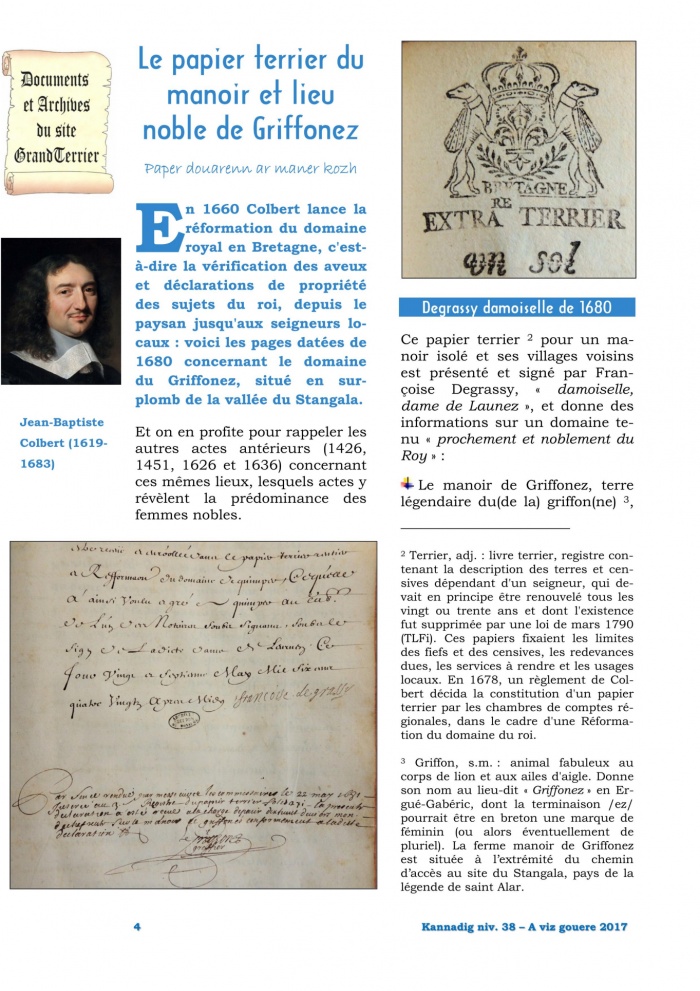 Documents
et Archives
du site
GrandTerrier
Le papier terrier du
manoir et lieu
noble de Griffonez
Paper douarenn ar maner kozh
En 1660 Colbert lance la
réformation du domaine
royal en Bretagne, c'est-
à-dire la vérification des aveux
et déclarations de propriété
des sujets du roi, depuis le
paysan jusqu'aux seigneurs lo-
caux : voici les pages datées de
1680 concernant le domaine
du Griffonez, situé en sur-
plomb de la vallée du Stangala.
Jean-Baptiste
Colbert (1619-
1683)
Et on en profite pour rappeler les
autres actes antérieurs (1426,
1451, 1626 et 1636) concernant
ces mêmes lieux, lesquels actes y
révèlent la prédominance des
femmes nobles.
BRETAGNE
RE
EXTRA TERRIER
un sol
Degrassy damoiselle de 1680
Ce papier terrier ² pour un ma-
noir isolé et ses villages voisins
est présenté et signé par Fran-
çoise Degrassy, « damoiselle,
dame de Launez », et donne des
informations sur un domaine te-
nu « prochement et noblement du
Roy » :
Le manoir de Griffonez, terre
légendaire du(de la) griffon(ne) ³,
le papier terrier
a Refformaon du domaine de quimper,
a ainsi voulu
de
Jour Vingt a septiesme May Mil Six cent
quatre Vingts Apres Midy francoise degrassy
le 22 may 1681
papier terrier
declaration
declaration
² Terrier, adj. : livre terrier, registre con-
tenant la description des terres et cen-
sives dépendant d'un seigneur, qui de-
vait en principe être renouvelé tous les
vingt ou trente ans et dont l'existence
fut supprimée par une loi de mars 1790
(TLFi). Ces papiers fixaient les limites
des fiefs et des censives, les redevances
dues, les services à rendre et les usages
locaux. En 1678, un règlement de Col-
bert décida la constitution d'un papier
terrier par les chambres de comptes ré-
gionales, dans le cadre d'une Réforma-
tion du domaine du roi.
³ Griffon, s.m. : animal fabuleux au
corps de lion et aux ailes d'aigle. Donne
son nom au lieu-dit « Griffonez » en Er-
gué-Gabéric, dont la terminaison /ez/
pourrait être en breton une marque de
féminin (ou alors éventuellement de
pluriel). La ferme manoir de Griffonez
est située à l'extrémité du chemin
d'accès au site du Stangala, pays de la
légende de saint Alar.
4
Kannadig niv. 38 – A viz gouere 2017